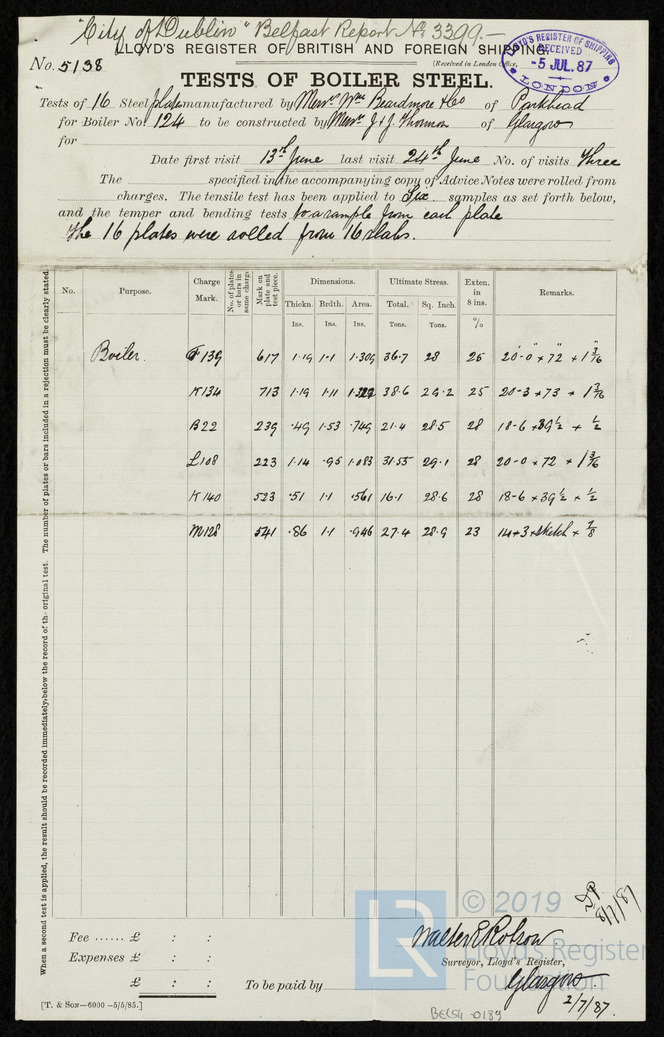 "City of Dublin" Belfast Report No. 3399.—
LLOYD'S REGISTER OF BRITISH AND FOREIGN SHIPPING.
No. 5138
(Received in London Office,
LLOYD'S REGISTER OF SHIPPING
RECEIVED
-5 JUL. 87
LONDON
TESTS OF BOILER STEEL.
Tests of 16 Steel plates manufactured by Messrs Wm Beardmore & Co of Parkhead
for Boiler No. 124 to be constructed by Messrs J & J Thomson of Glasgow
for
Date first visit 13th June last visit 24th June No. of visits Three
The specified in the accompanying copy of Advice Notes were rolled from
charges. The tensile test has been applied to Six samples as set forth below,
and the temper and bending tests to a sample from each plate
The 16 plates were rolled from 16 slabs.
No. Purpose. Charge Mark. No. of plates or bars in same charge Mark on plate and test piece. Dimensions. Ultimate Stress. Exten. in 8 ins. Remarks.
Thickn. Brdth. Area. Total. Sq. Inch.
Ins. Ins. Ins. Tons. Tons. %
Boiler. F139 617 1.19 1.1 1.309 36.7 28 26 20-0 × 72 × 1 3/16
K134 713 1.19 1.11 38.6 29.2 25 20-3 × 73 × 1 3/16
B22 239 .49 1.53 .749 21.4 28.5 28 18-6 × 39½ × ½
L108 223 1.14 .95 1.083 31.55 29.1 28 20-0 × 72 × 1 3/16
K140 523 .51 1.1 .561 16.1 28.6 28 18-6 × 39½ × ½
M128 541 .86 1.1 .946 27.4 28.9 23 14+3 × sketch × 7/8
When a second test is applied, the result should be recorded immediately below the record of the original test. The number of plates or bars included in a rejection must be clearly stated.
8/7/87
LR
© 2019
Lloyd's Register
Foundation
Fee ...... £ : :
Expenses £ : :
£ : :
Walter E Robson.
Surveyor, Lloyd's Register,
To be paid by
Glasgow
2/7/87.
[T. & Son—6000—5/5/85.]
BEL54-0189